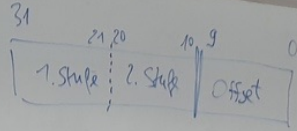 31
21 20 10 9 0
1. Stufe 2. Stufe Offset